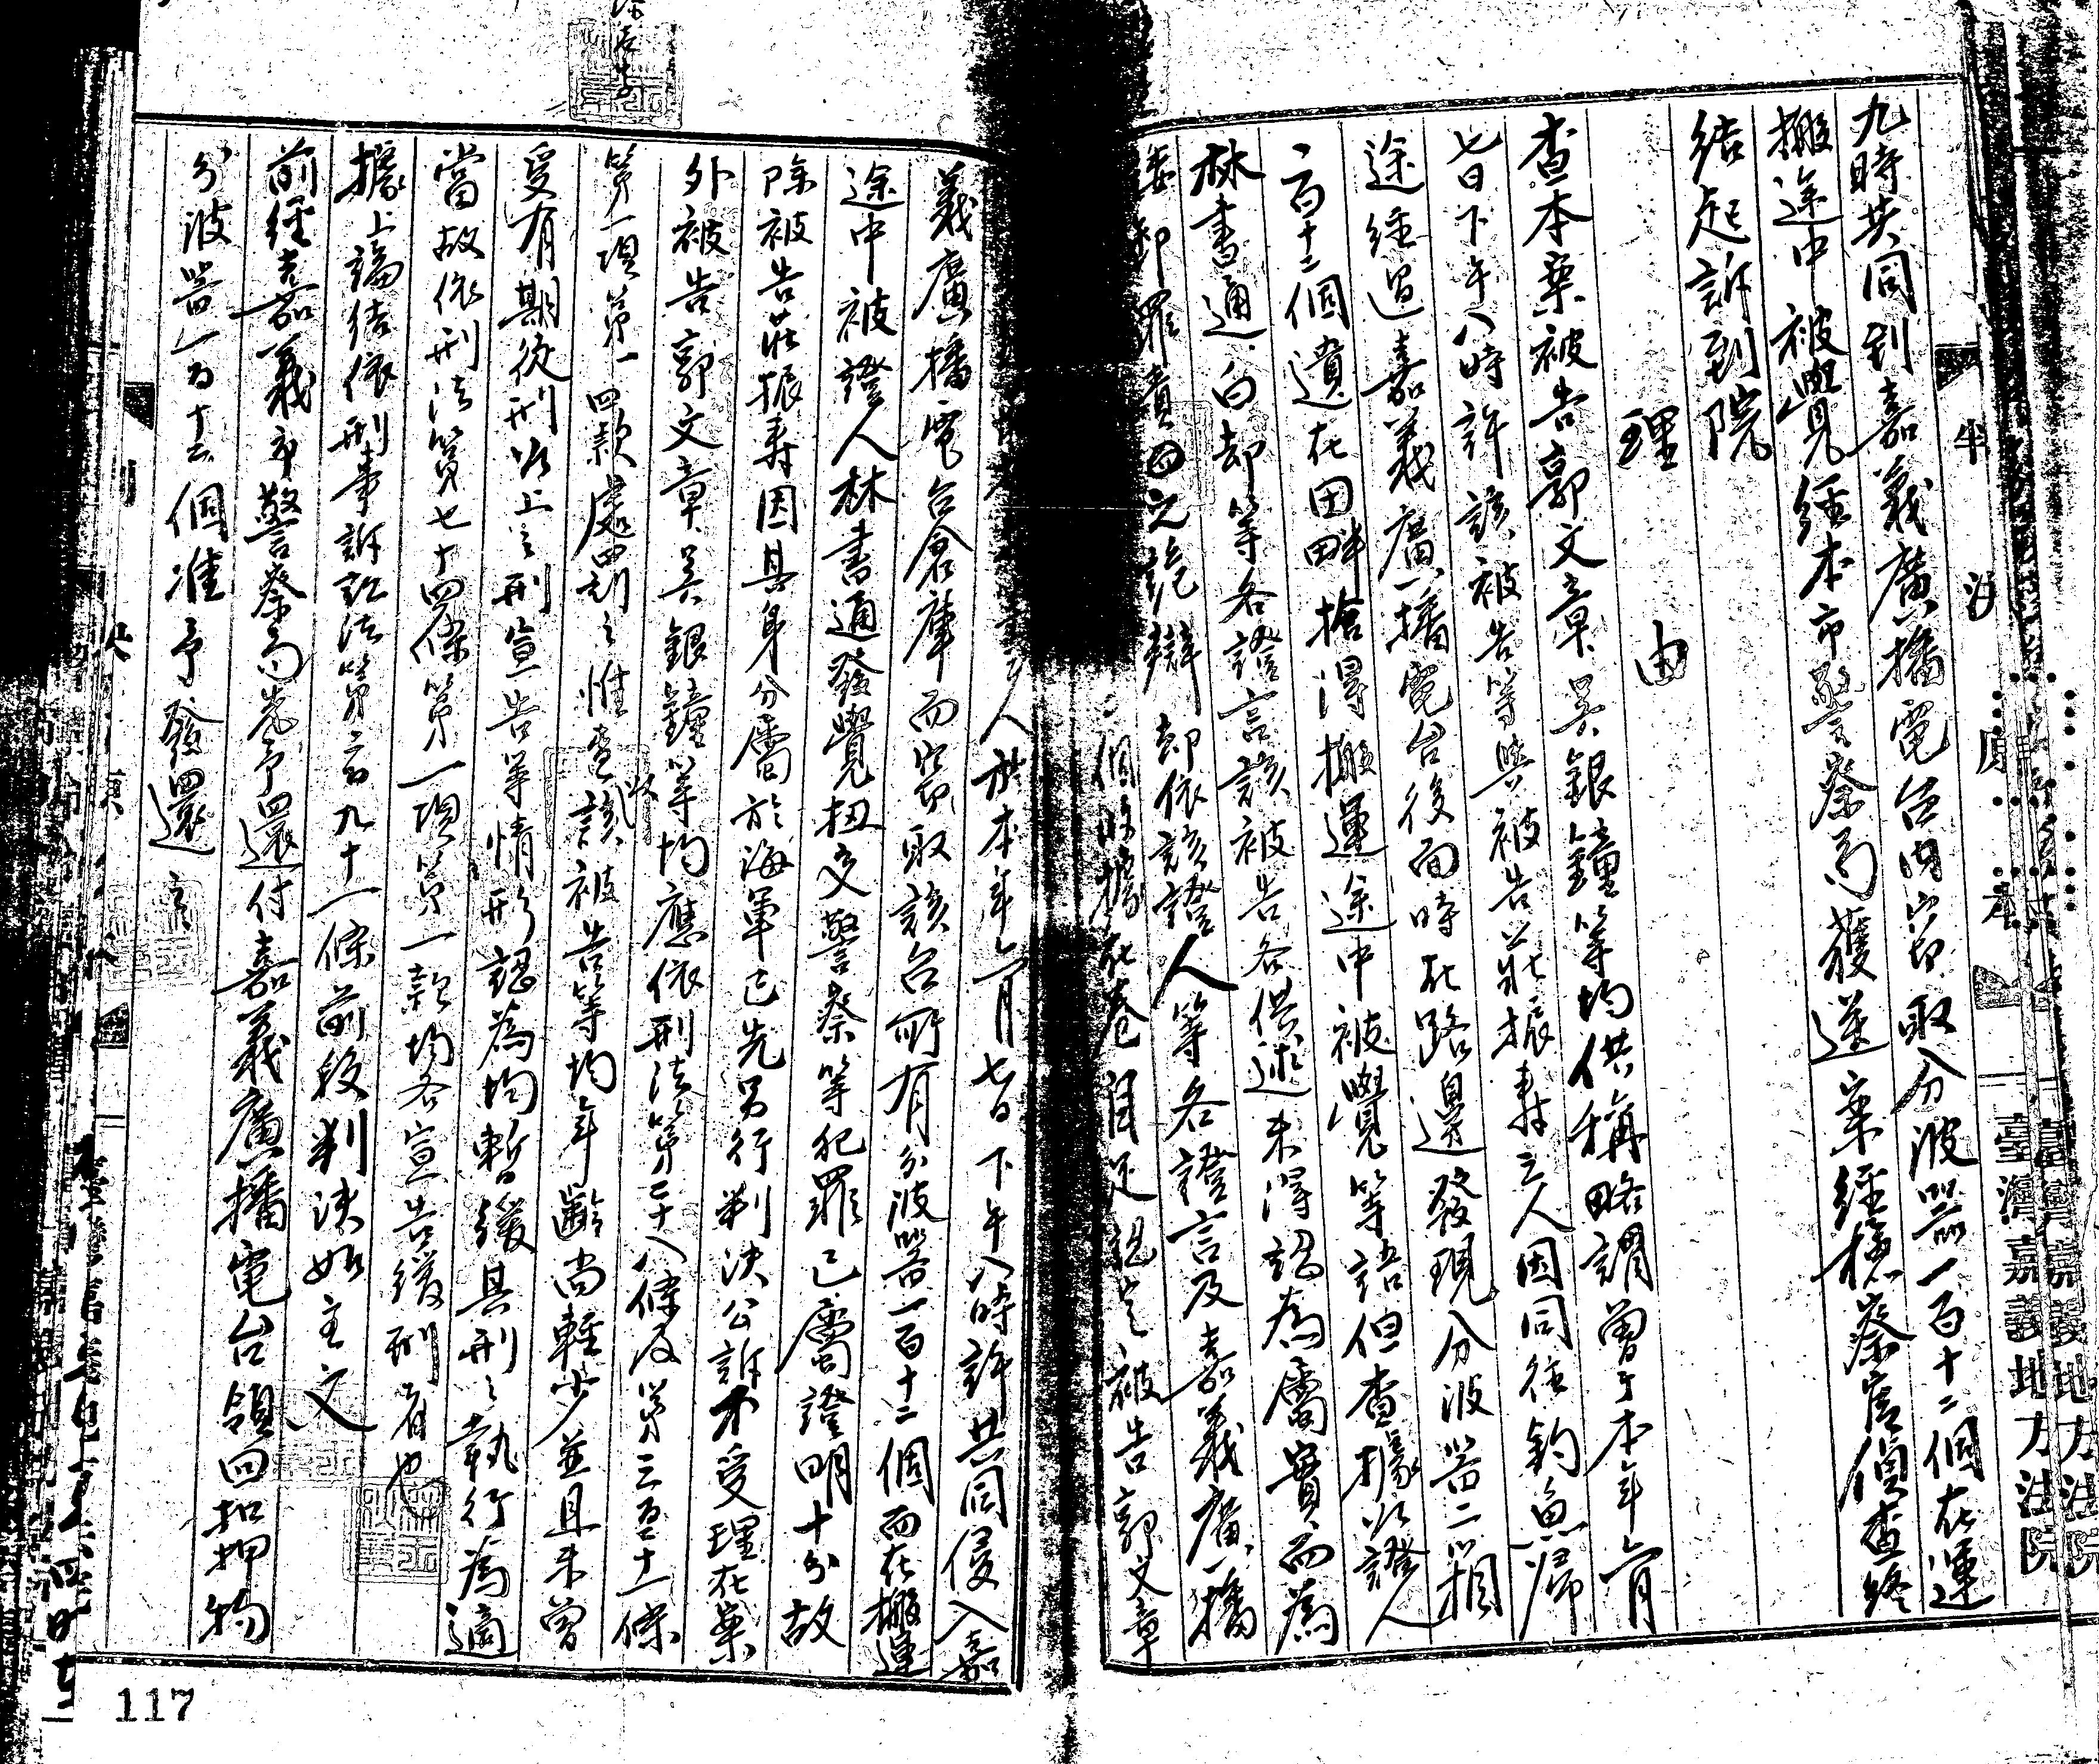 九時共同到嘉義廣播電台內竊取分波器一百十二個在運
搬途中被覺經本市警察局獲送案經檢察官偵查終
結起訴到院
理由
查本案被告郭文章吳銀鐘等均供稱略謂曾于本年六月
七日下午八時許該被告等與被告莊振壽三人因同往釣魚歸
途經過嘉義廣播電台後面時在路邊發現分波器二箱
一百十二個遺在田畔搶得搬運途中被覺等語但查據以證人
林書通白却等各證言該被告各供述未得認為屬實而為
罪責之說辯却依該證人等各證言及嘉義廣播
個時據在卷自足認定被告郭文章
人於本年六月七日下午八時許共同侵入嘉
義廣播電台倉庫而竊取該台所有分波器一百十二個而在搬運
途中被證人林書通發覺扭交警察等犯罪已屬證明十分故
除被告莊振壽因其身分屬於海軍已先另行判決公訴不受理在案
外被告郭文章吳銀鐘等均應依刑法第二十八條及第三百二十一條
第一項第一四款處罰之惟查該被告等均年齡尚輕少並且未曾
受有期徒刑以上之刑宣告等情形認為均暫緩其刑之執行為適
當故依刑法第七十四條第一項第一款均各宣告緩刑者也
據上論結依刑事訴訟法第二百九十一條前段判決如主文
前經嘉義市警察局先予還付嘉義廣播電台領回扣押物
分波器一百十二個准予發還之
臺灣嘉義地方法院
117